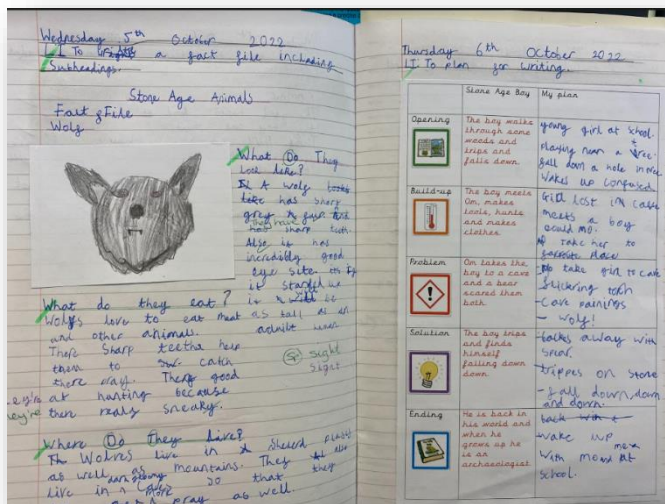 Wednesday 5th October 2022
LI To write a fact file including
Subheadings.
Stone Age Animals
Fact File
Wolf
What Do They
Look like?
A wolf
has sharp
grey
They have
has sharp teeth.
Also it has
incredibly good
eye site
it
What do they eat?
Wolfs love to eat meat as tall as an
and other animals.
There Sharp teeth help
them to catch
there pray. They good
at hunting because
there really sneaky.
they're
Sp sight
sight
Where Do They Live?
Wolves live in
as well as mountains. They also
live in so that they
pray as well.
Thursday 6th October 2022
LI To plan for writing.
Stone Age Boy
My plan
Opening
The boy walks
through some
woods and
trips and
falls down.
young girl at school.
playing near a tree.
fall down a hole in tree
wakes up confused
Build-up
The boy meets
Om, makes
tools, hunts
and makes
clothes.
Girl lost in cave
meets a boy
take her to
place
Problem
Om takes the
boy to a cave
and a bear
scared them
both.
take girl to cave
flickering torch
- Cave paintings
- wolf!
Solution
The boy trips
and finds
himself
falling down
down.
away with
spear.
trippes on stone
- fall down, down
and down.
Ending
He is back in
his world and
when he
grows up he
is an
archaeologist
wake up
with mum at
school.